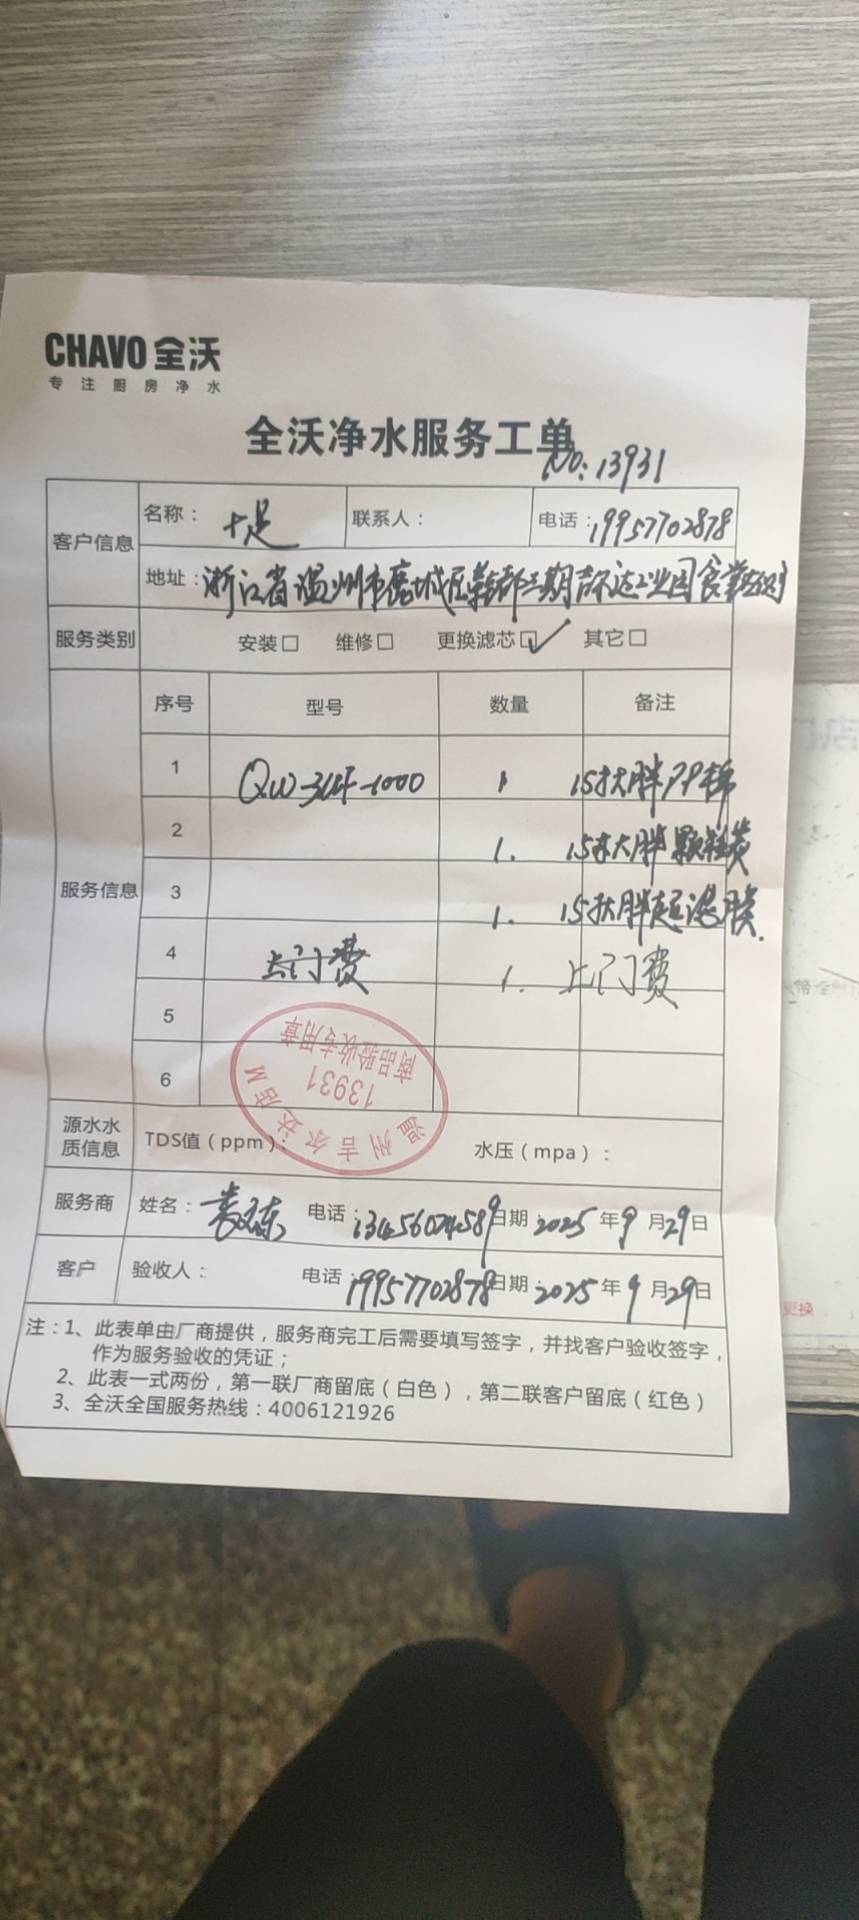 CHAVO 全沃
专注厨房净水
全沃净水服务工单
NO: 13931
客户信息 名称： 十足 联系人： 电话：19957702878
地址：浙江省温州市鹿城区鞋都三期吉尔达工业园食堂
服务类别 安装□ 维修□ 更换滤芯☑ 其它□
服务信息 序号 型号 数量 备注
1 QW-3UF-1000 1 15寸大胖PP棉
2 1. 15寸大胖颗粒炭
3 1. 15寸大胖超滤膜.
4 上门费 1. 上门费
5
6
温州吉尔达店M
13931
商品验收专用章
源水水质信息 TDS值（ppm）： 水压（mpa）：
服务商 姓名： 电话：13456024589 日期：2025年9月29日
客户 验收人： 电话：19957702878 日期：2025年9月29日
注：1、此表单由厂商提供，服务商完工后需要填写签字，并找客户验收签字，
作为服务验收的凭证；
2、此表一式两份，第一联厂商留底（白色），第二联客户留底（红色）
3、全沃全国服务热线：4006121926
更换